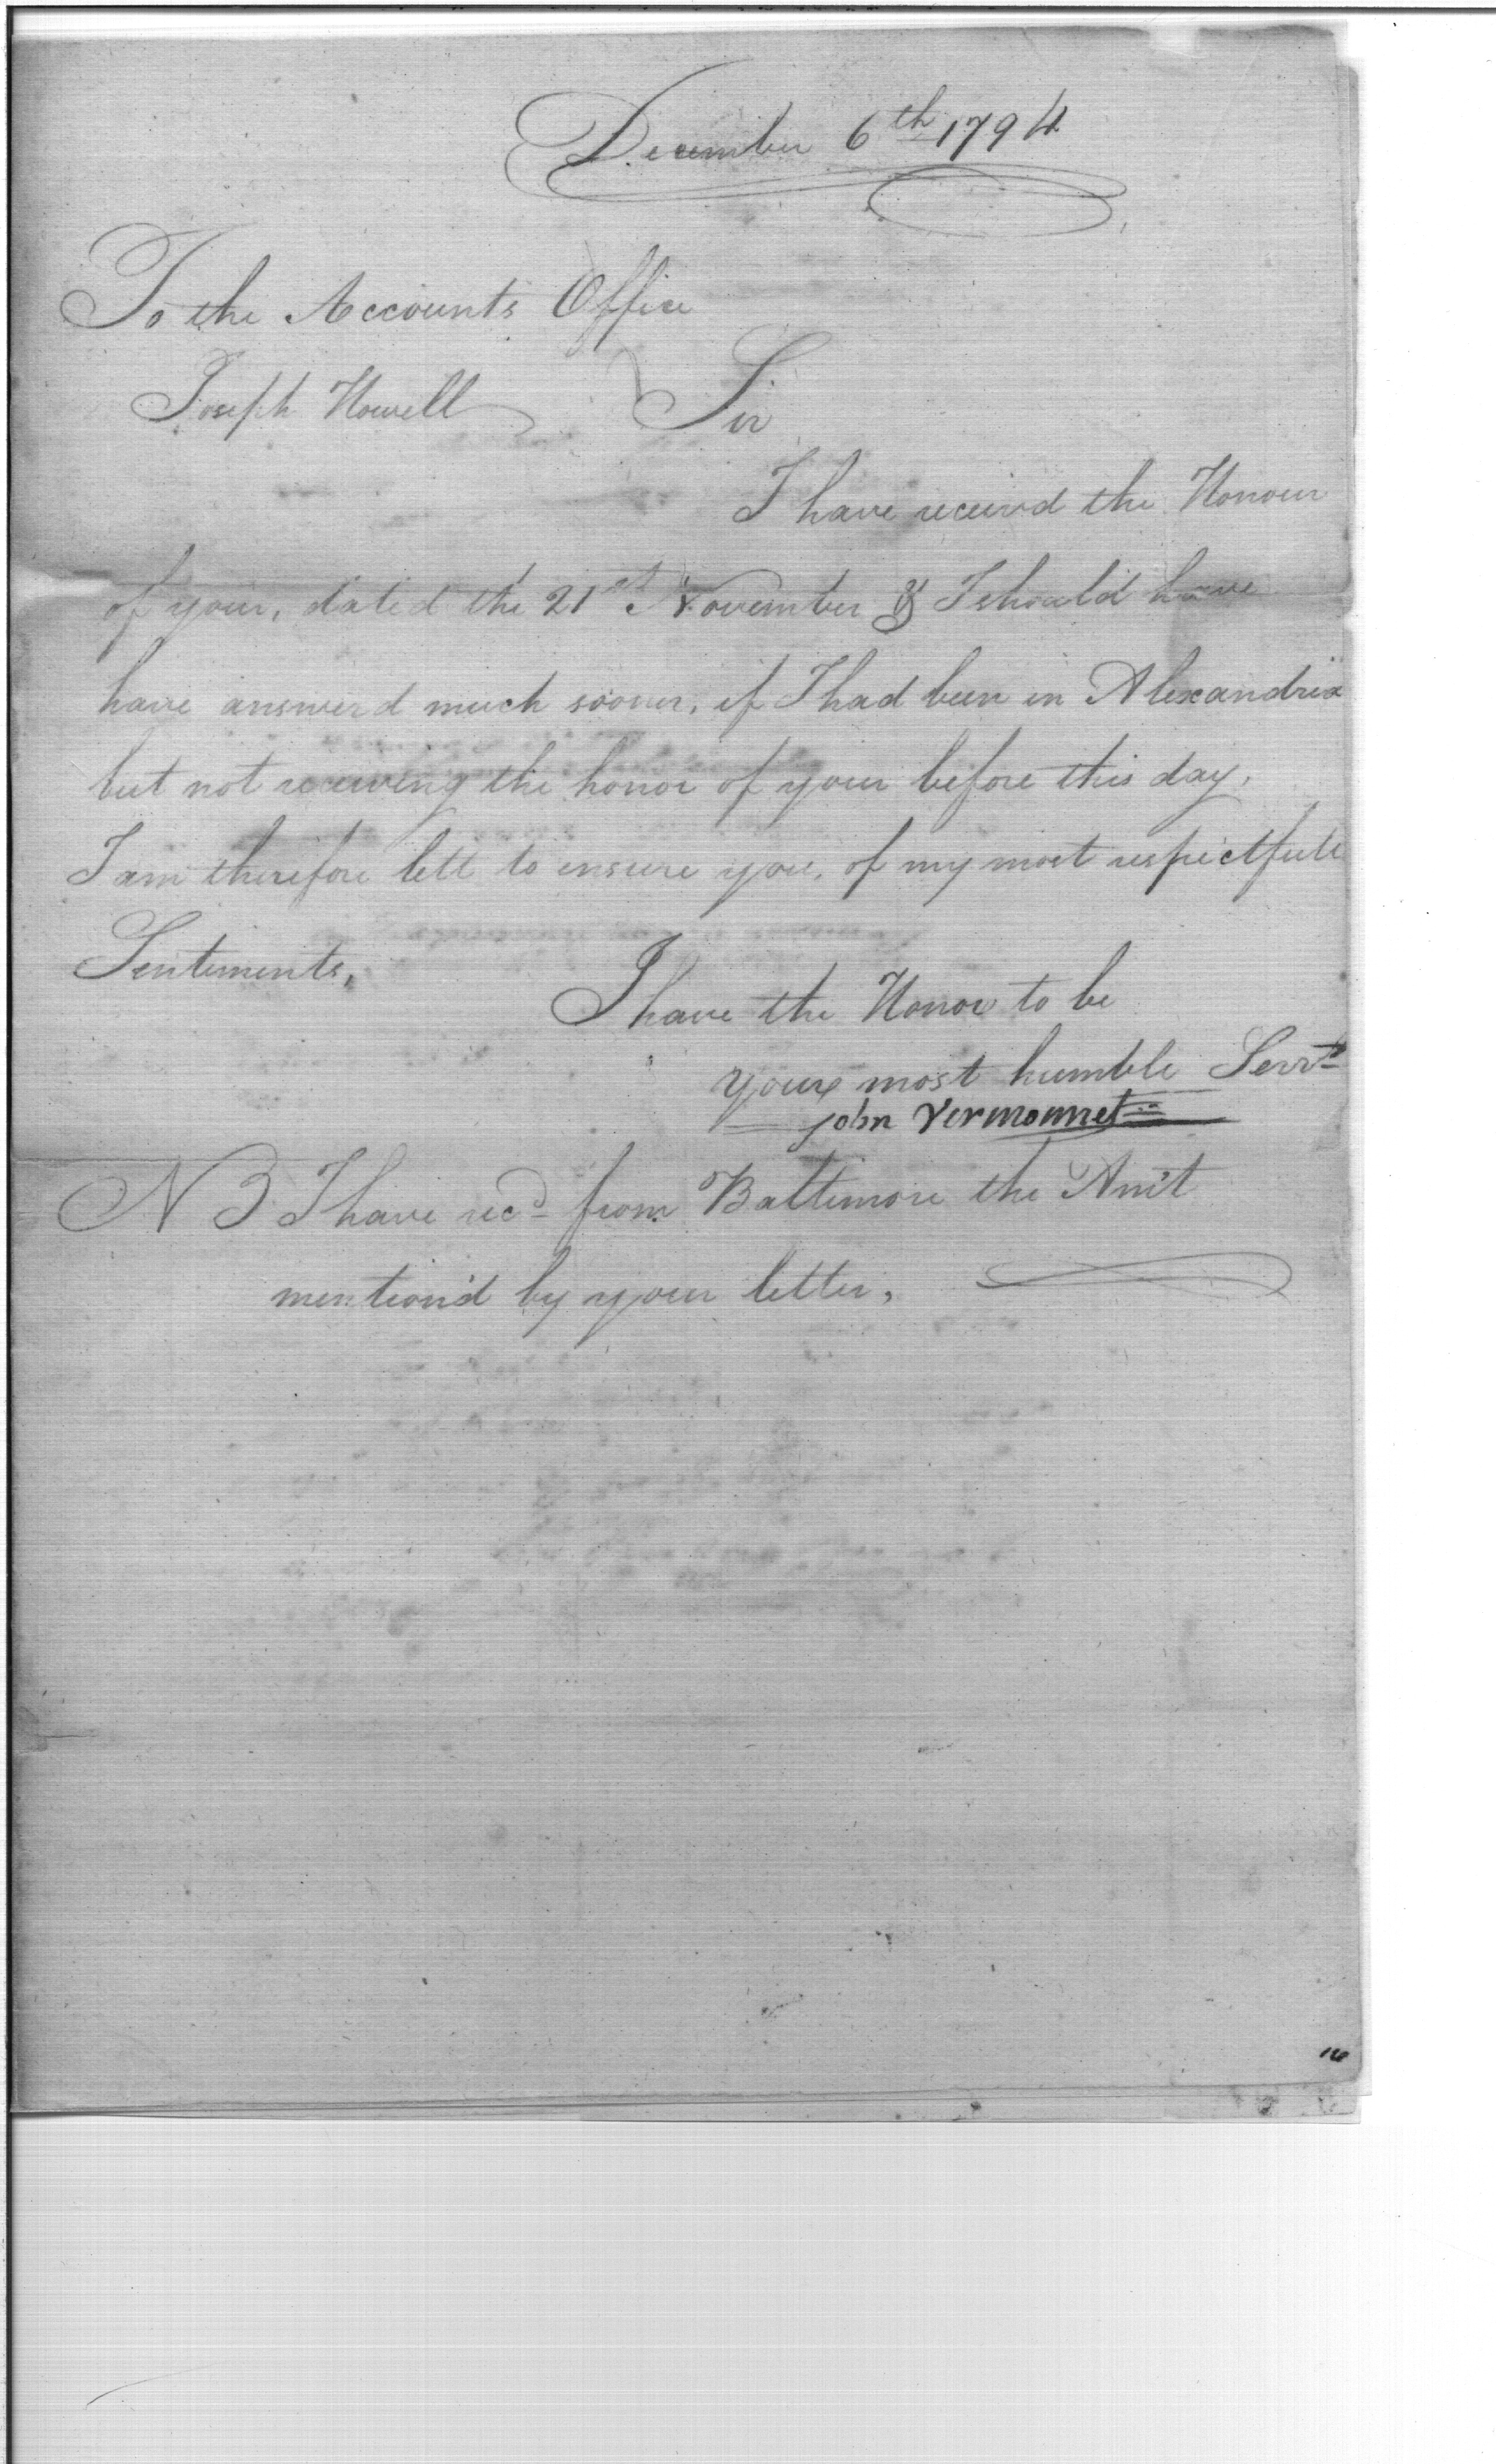 December 6th 1794
To the Accounts Office
Joseph Howell Sir
I have receivd the Honour
of your, dated the 21st November & I should have
have answerd much sooner, if I had been in Alexandria
but not receiving the honor of your before this day,
I am therefore lett to ensure you, of my most respectfull
Sentiments,
I have the Honor to be
your most humble Servt
John Vermonnet
N B I have recd from Baltimore the Am't
mention'd by your letter,